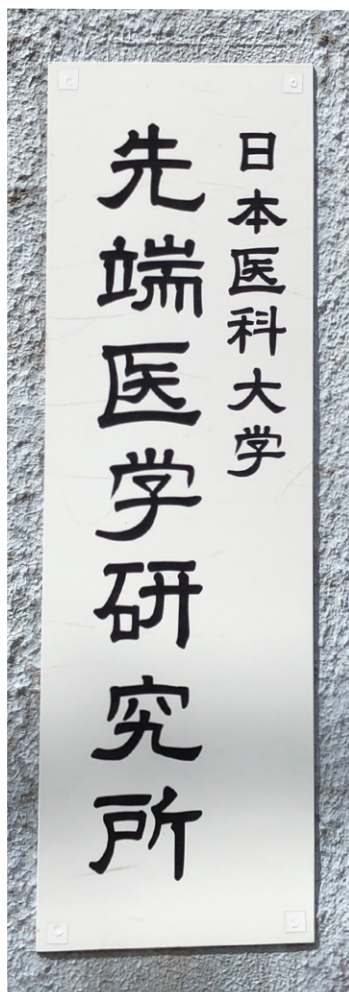 日本医科大学
先端医学研究所